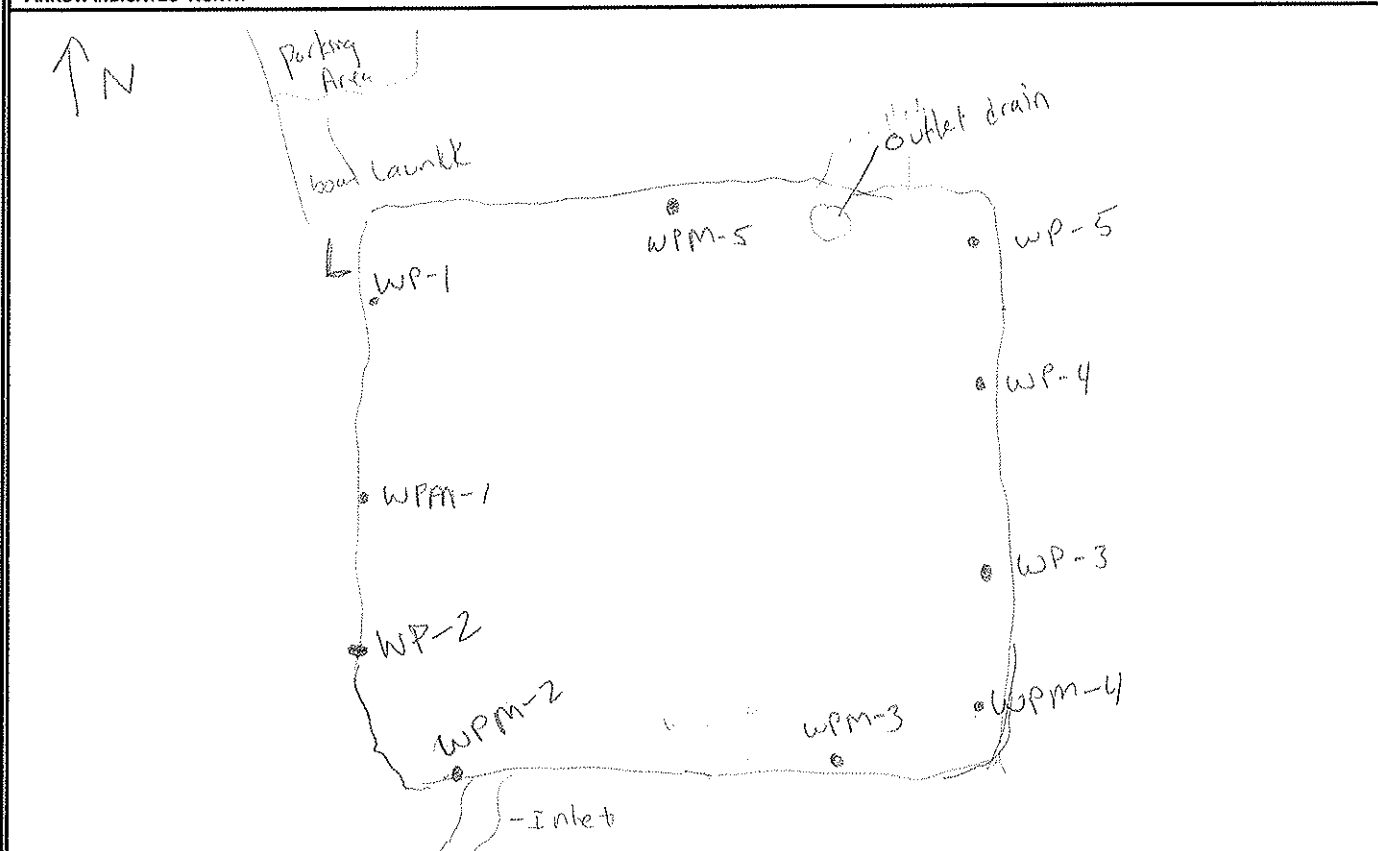 N
Parking
Area
boat Launck
outlet drain
WPM-5
WP-5
L
WP-1
WP-4
WPM-1
WP-3
WP-2
WPM-2
WPM-4
WPM-3
-Inlet